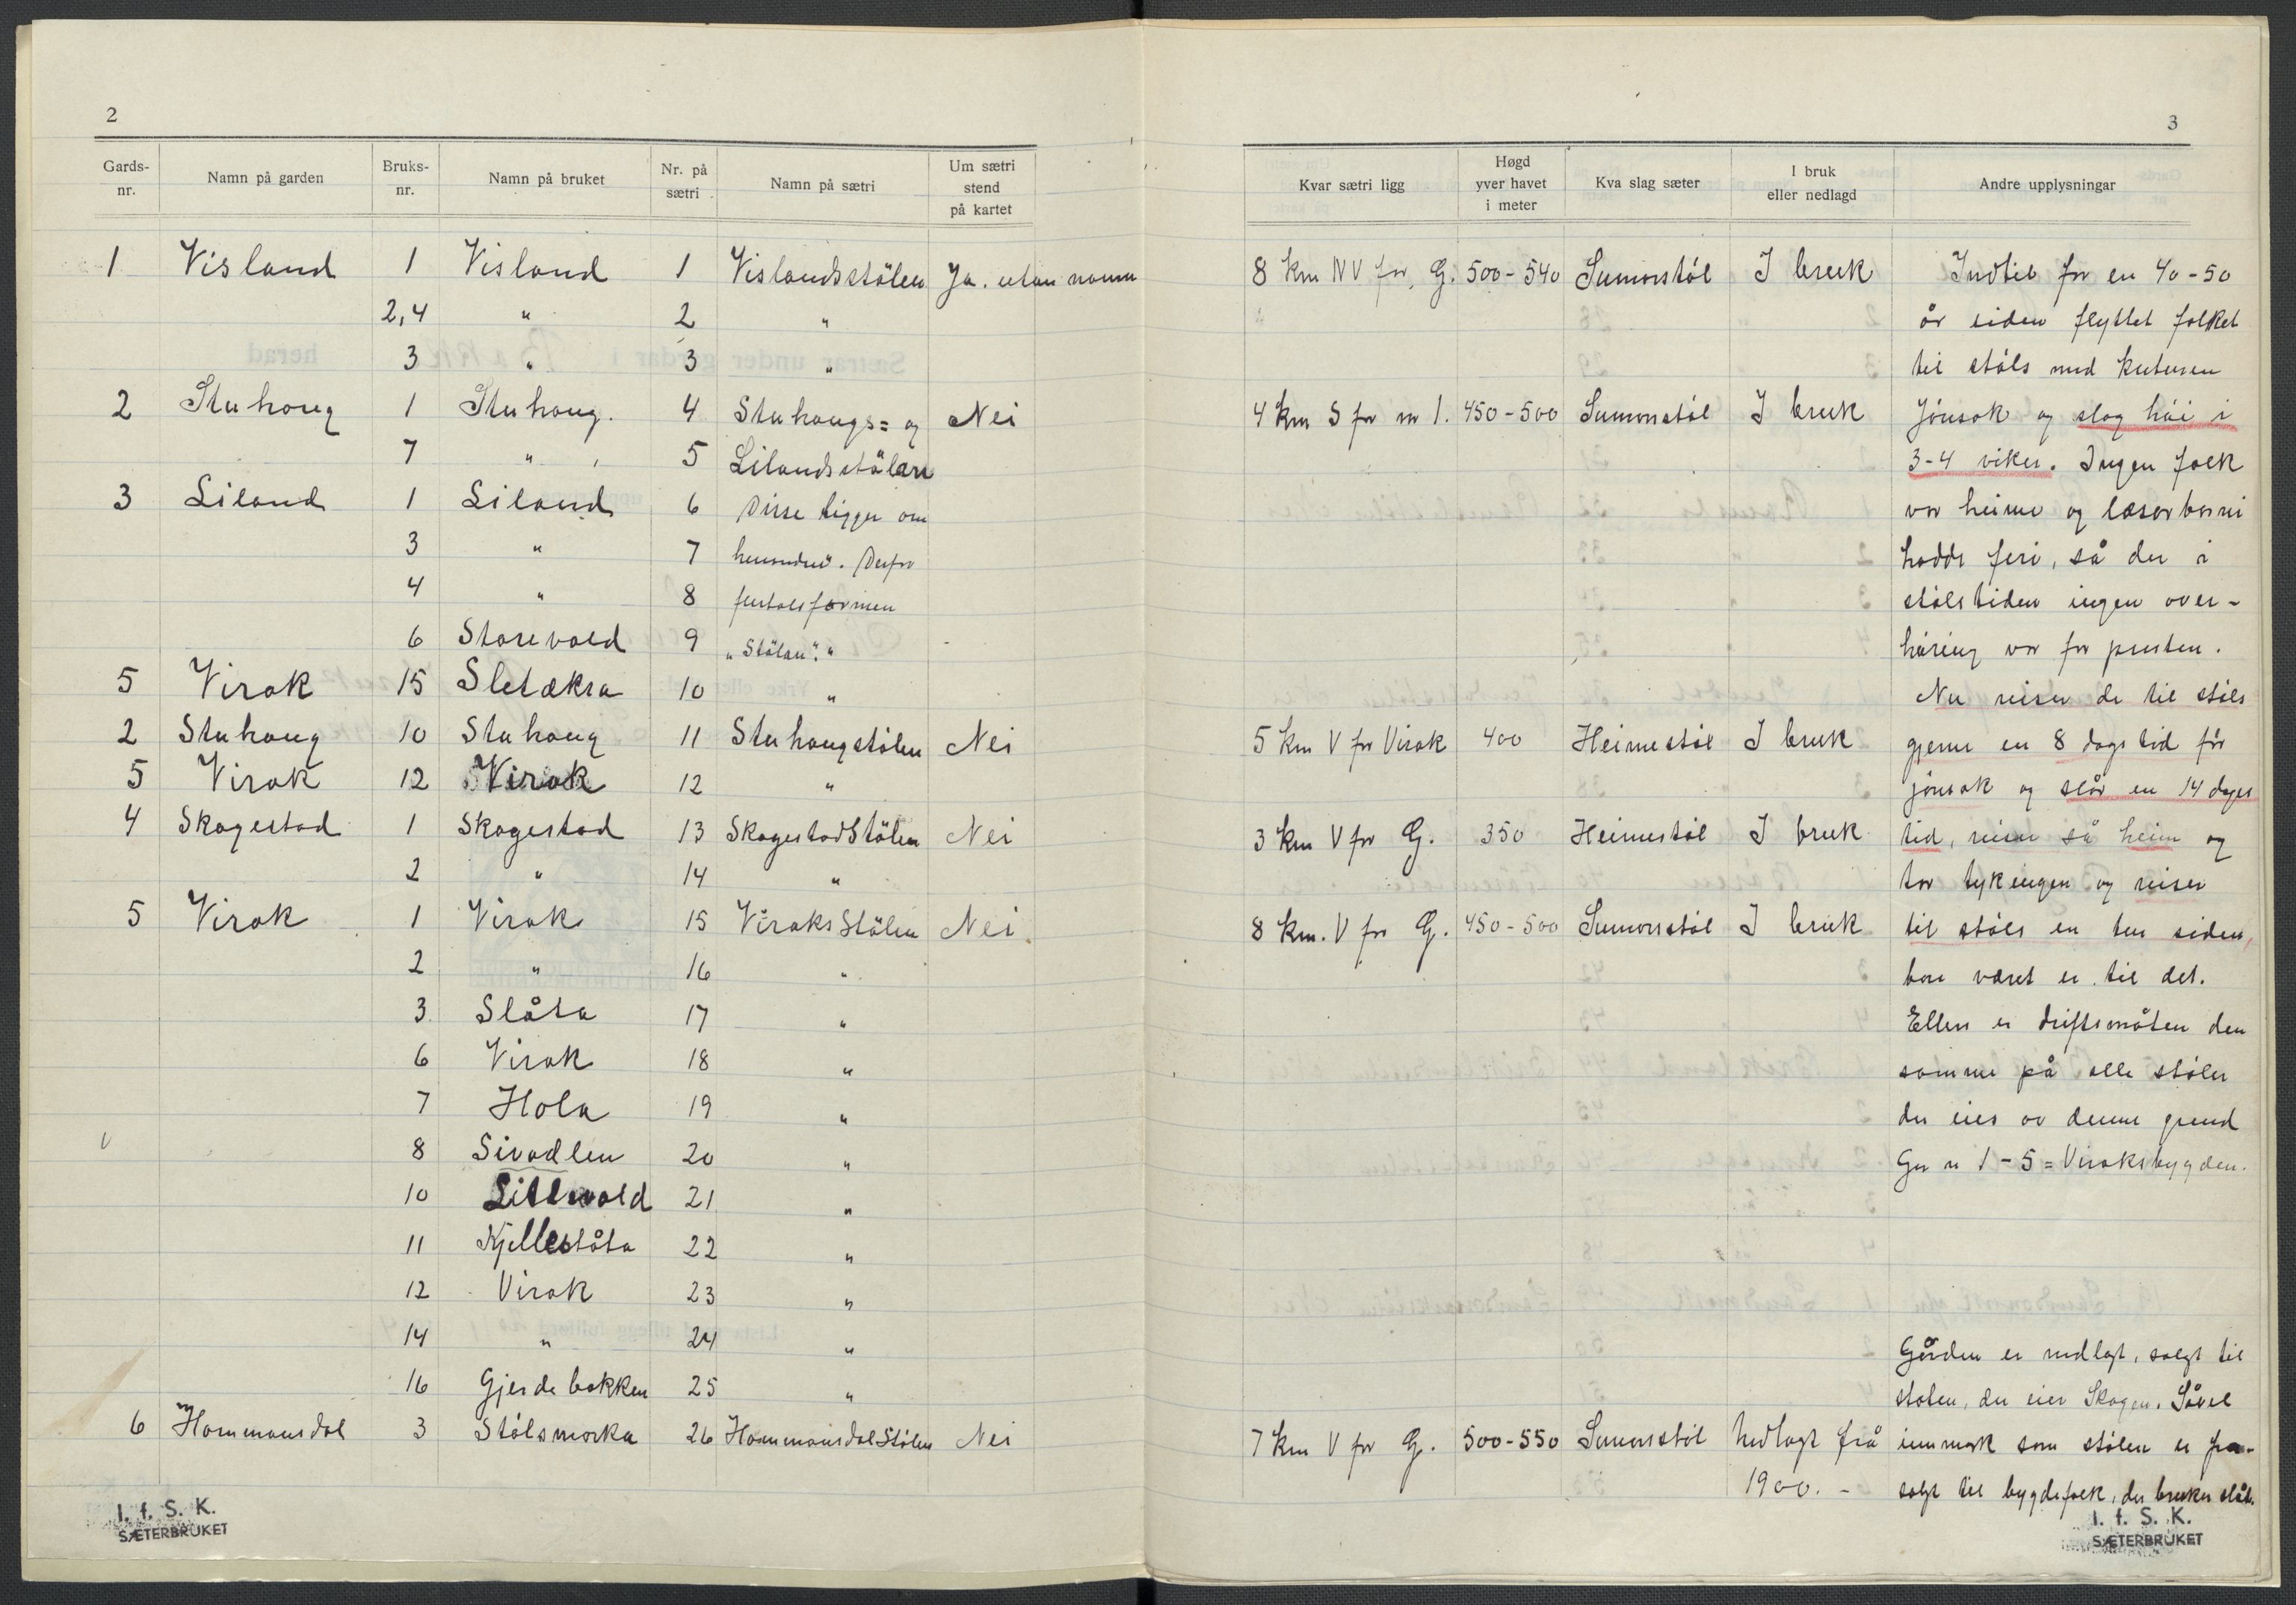 2
Gards-nr. Namn på garden Bruks-nr. Namn på bruket Nr. på sætri Namn på sætri Um sætri stend på kartet
1 Visland 1 Visland 1 Vislandsstölen Ja. utan namn
2,4 " 2 "
3 " 3 "
2 Stuhaug 1 Stuhaug. 4 Stuhaugs= og Nei
7 " 5 Lilandsstölan
3 Liland 1 Liland 6 Disse ligger om
3 " 7 Derfor
4 " 8
6 Storevold 9 "Stölan". "
5 Virak 15 Sletækra 10 "
2 Stuhaug 10 Stuhaug 11 Stuhaugstölen Nei
5 Virak 12 Virak 12 "
4 Skagestad 1 Skagestad 13 SkagestadStölen Nei
2 " 14 "
5 Virak 1 Virak 15 ViraksStölen Nei.
2 " 16 "
3 Slåta 17 "
6 Virak 18 "
7 Hola 19 "
8 Sivodlen 20 "
10 Litlevold 21 "
11 Kjelleslåta 22 "
12 Virak 23 "
14 " 24 "
16 Gjerdebakken 25 "
6 Hammansdal 3 Stölsmorka 26 HammansdalStölen Nei
I. f. S. K.
SÆTERBRUKET
3
Kvar sætri ligg Høgd yver havet i meter Kva slag sæter I bruk eller nedlagd Andre upplysningar
8 km NV for G. 500-540 Sumorstöl I bruk Indtil for en 40-50
år siden flyttet folket
til stöls med kuturen
4 km S for nr 1. 450-500 Sumorstöl I bruk Jónsok og slog höi i
3-4 viker. Ingen folk
var heime og læsarborni
hadde feri, så der i
stölstiden ingen over-
höring var for presten.
Nu reiser de til stöls
5 km V for Virak 400 Heimestöl I bruk gjerne en 8 dags tid för
jónsok og slår en 14 dages
3 km V for G. 350 Heimestöl I bruk tid, reiser så heim og
tar lykingen og reiser
8 km. V for G. 450-500 Sumorstöl I bruk til stöls en tur siden,
bare været er til det.
Ellers er driftsmåten den
samme på alle stöler
der eies av denne grend
Gr nr 1-5 = Viraksbygden.
Gården er nedlagt, solgt til
staten, der eier Skogen. Såvel
7 km V for G. 500-550 Sumorstöl Nedlagt frå innmark som stölen er fra-
1900. - solgt til bygdefolk, der bruker slåt.
I. f. S. K.
SÆTERBRUKET